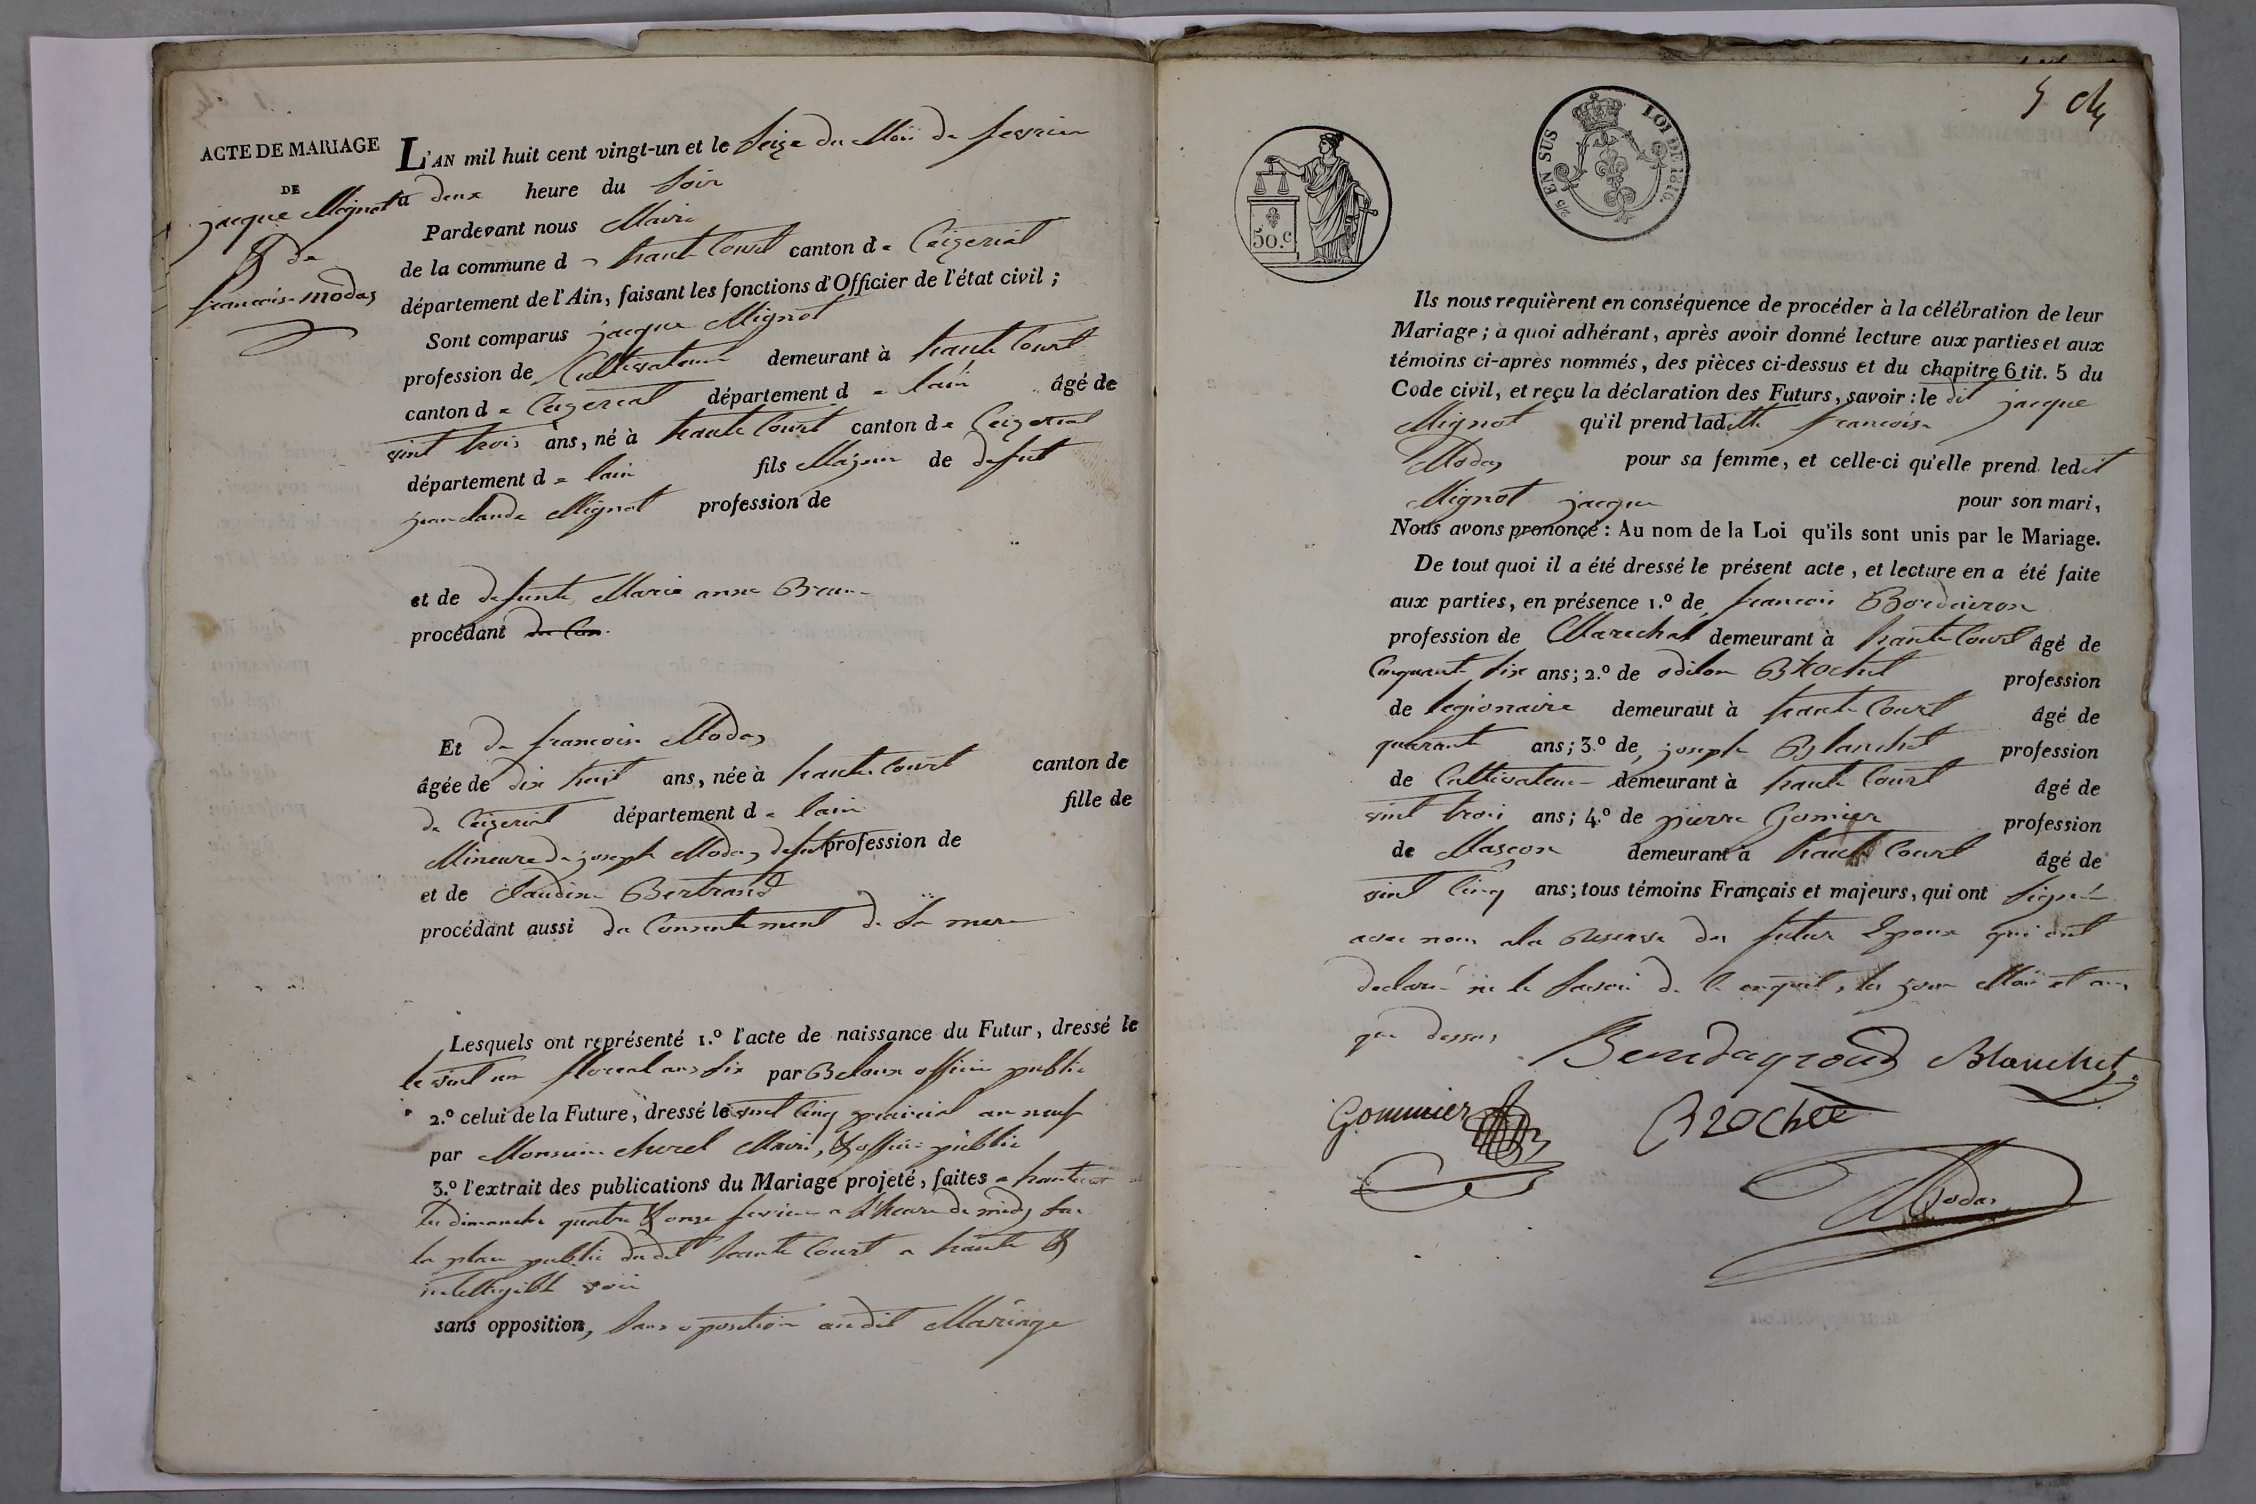 ACTE DE MARIAGE
DE
jacque Mignot
& de
francoise modas
L'AN mil huit cent vingt-un et le seize du Moi de fevrier
a deux heure du soir
Pardevant nous Maire
de la commune d haute Court canton de Ceizeriat
département de l'Ain, faisant les fonctions d'Officier de l'état civil ;
Sont comparus jacque Mignot
profession de Cultivateur demeurant à haute Court
canton de Ceizeriat département de lain âgé de
vint trois ans, né à haute Court canton de Ceizeriat
département de lain fils Majeur de defunt
jean claude Mignot profession de
et de defunte Marie anne
procédant
Et de francoise Modas
âgée de dix huit ans, née à haute Court canton de
de Ceizeriat département de lain fille de
Mineure de joseph Modas defunt profession de
et de Claudine Bertrand
procédant aussi du Consentement de sa mere
Lesquels ont représenté 1.º l'acte de naissance du Futur, dressé le
le vint un floreal ans six par Beloux officier public
2.º celui de la Future, dressé le vint cinq prairial an neuf
par Monsieur Maire, & officier public
3.º l'extrait des publications du Mariage projeté, faites a hautecourt
les dimanche quatre & onze fevrier a l'heure de midy sur
la place public dudit haute Court a haute &
intelligible voix
sans opposition, sans oposition audit Mariage
50.C
2/5 EN SUS LOI DE 1816.
Ils nous requièrent en conséquence de procéder à la célébration de leur
Mariage ; à quoi adhérant, après avoir donné lecture aux parties et aux
témoins ci-après nommés, des pièces ci-dessus et du chapitre 6 tit. 5 du
Code civil, et reçu la déclaration des Futurs, savoir : le dit jacque
Mignot qu'il prend laditte francoise
Modas pour sa femme, et celle-ci qu'elle prend ledit
Mignot jacque pour son mari,
Nous avons prononcé : Au nom de la Loi qu'ils sont unis par le Mariage.
De tout quoi il a été dressé le présent acte, et lecture en a été faite
aux parties, en présence 1.º de francois
profession de Marechal demeurant à haute Court âgé de
Cinquante six ans ; 2.º de odilon Brochet profession
de legionaire demeurant à haute Court âgé de
quarante ans ; 3.º de joseph Blanchet profession
de Cultivateur demeurant à haute Court âgé de
vint trois ans ; 4.º de pierre Gomier profession
de Masson demeurant à haute Court âgé de
vint Cinq ans ; tous témoins Français et majeurs, qui ont signé
avec nous ala reserve des futur Epoux qui ont
declaré ne le savoir de ce enquit, les jour Moi et an
que dessus
Blanchet
Gommier
Brochet
Modas